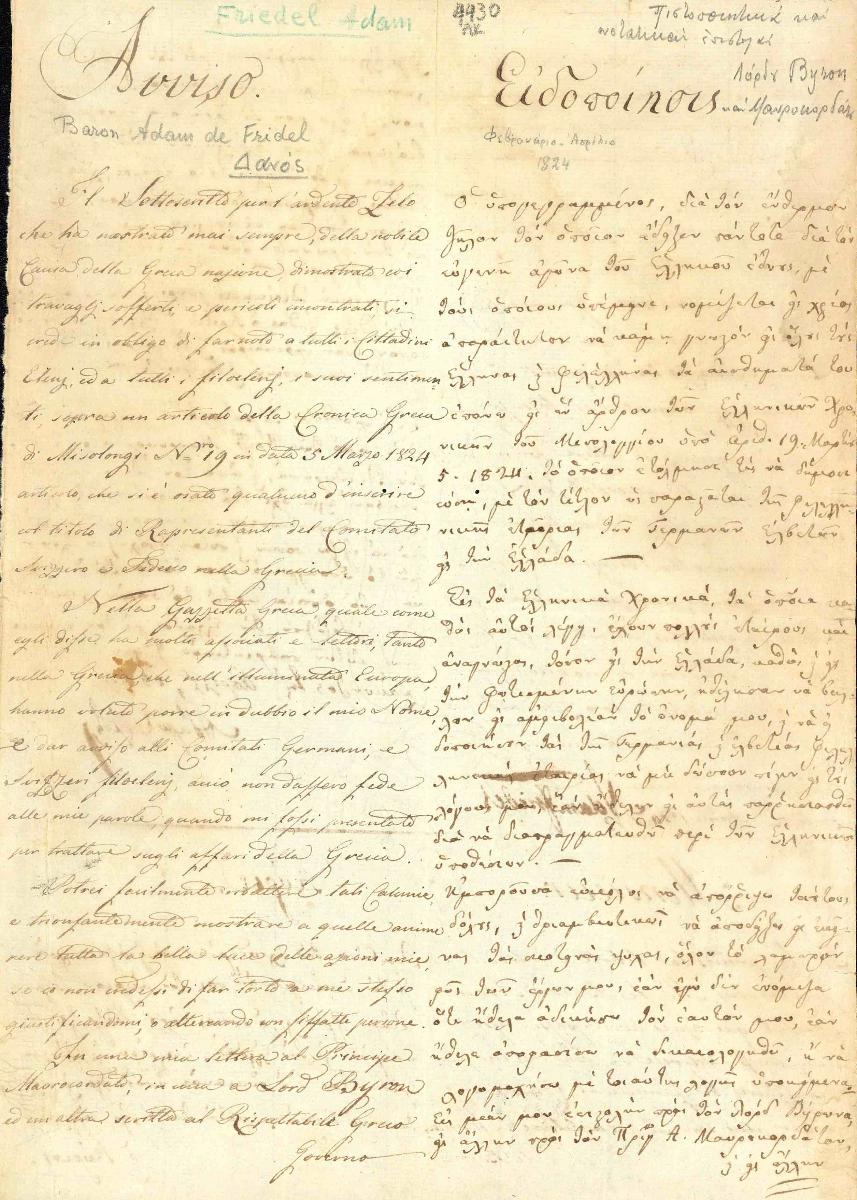 Friedel Adam
4430
Πιστοποιητικά και
συστατικαί επιστολαί
Λόρδου Byron
και Μαυροκορδάτου
Avviso.
Baron Adam de Fridel
Δανός
Il Sottoscritto per l'ardente Zelo
che ha mostrato mai sempre, della nobile
Causa della Greca nazione, dimostrato coi
travaglj sofferti, e pericoli incontrati, si
crede in obligo di far noto a tutti i Cittadini
Elenj, ed a tutti i filoelenj, i suoi sentimen
ti sopra un articolo della Cronica Greca
di Misolongi Nro 19 in data 5 Marzo 1824
articolo, che si è osato qualcuno d'inserire
col titolo di Rapresentanti del Comitato
Svizzero e Tedesco nella Grecia.
Nella Gazzetta Greca, quale come
egli disse ha molti associati e lettori, tanto
nella Grecia che nell'illuminata Europa,
hanno voluto porre in dubbio il mio Nome
e dar avviso alli Comitati Germani, e
Svizzeri filoelenj, acciò non dassero fede
alle mie parole, quando mi fossi presentato
per trattare sugli affari della Grecia.
Potrei facilmente ribattere tali Calunie,
e trionfantemente mostrare a quelle anime
nere tutta la bella luce delle azioni mie,
se io non credessi di far torto a me stesso
giustificandomi, e altercando con siffatte persone.
In una mia lettera al Principe
Maurocordato, in una a Lord Byron
ed un altra scritta al Rispettabile Greco
Governo
Εἰδοποίησις
Φεβρουάριο - Απρίλιο
1824
Ὁ ὑπογεγραμμένος, διὰ τὸν ἔνθερμον
ζῆλον τὸν ὁποῖον ἔδειξεν πάντοτε διὰ τὸν
εὐγενῆ ἀγῶνα τοῦ Ἑλληνικοῦ ἔθνους, μὲ
τοὺς ὁποίους ὑπέμεινε, νομίζεται εἰς χρέος
ἀπαραίτητον νὰ κάμῃ γνωστὸν εἰς ὅλους τοὺς
Ἕλληνας καὶ φιλέλληνας τὰ αἰσθήματά του
ἐπάνω εἰς ἓν ἄρθρον τῶν Ἑλληνικῶν Χρο
νικῶν τοῦ Μεσολογγίου ὑπὸ ἀριθ. 19. Μαρτίου
5. 1824. τὸ ὁποῖον ἐτόλμησέ τις νὰ δημοσι
εύσῃ, μὲ τὸν τίτλον τῆς φιλελλη
νικῆς ἑταιρίας τῶν Γερμανῶν Ἑλβετῶν
εἰς τὴν Ἑλλάδα. —
Εἰς τὰ Ἑλληνικὰ Χρονικὰ, τὰ ὁποῖα κα
θὼς αὐτοὶ λέγει, ἔχουν πολλοὺς ἑταίρους καὶ
ἀναγνώστας, τόσον εἰς τὴν Ἑλλάδα, καθὼς καὶ εἰς
τὴν φωτισμένην εὐρώπην, ἠθέλησαν νὰ βάλ
λουν εἰς ἀμφιβολίαν τὸ ὄνομά μου, καὶ νὰ εἰ
δοποιήσουν τὰς τῆς Γερμανίας καὶ ἑλβετίας φιλελ
ληνικὰς ἑταιρίας νὰ μὴ δώσουν πίστιν εἰς τοὺς
λόγους μου, ἐὰν ἤθελον εἰς αὐτὰς παρρησιασθῶ
διὰ νὰ διαπραγματευθῶ περὶ τῶν ἑλληνικῶν
ὑποθέσεων. —
Ἠμποροῦσα εὐκόλως νὰ ἀπορρίψω
καὶ θριαμβευτικῶς νὰ ἀποδείξω εἰς ἐκεί
νας τὰς σκοτεινὰς ψυχὰς, ὅλον τὸ λαμπρὸν
φῶς τῶν ἔργων μου, ἐὰν ἐγὼ δὲν ἐνόμιζα
ὅτι ἤθελα ἀδικήσω τὸν ἑαυτόν μου, ἐὰν
ἤθελα ἀποφασίσω νὰ δικαιολογηθῶ, καὶ νὰ
λογομαχήσω μὲ τοιαύτης λογῆς ὑποκείμενα.
Εἰς μίαν μου ἐπιστολὴν πρὸς τὸν λορδ Βύρωνα,
εἰς ἄλλην πρὸς τὸν Πρίγ. Α. Μαυροκορδάτον,
καὶ εἰς ἄλλην